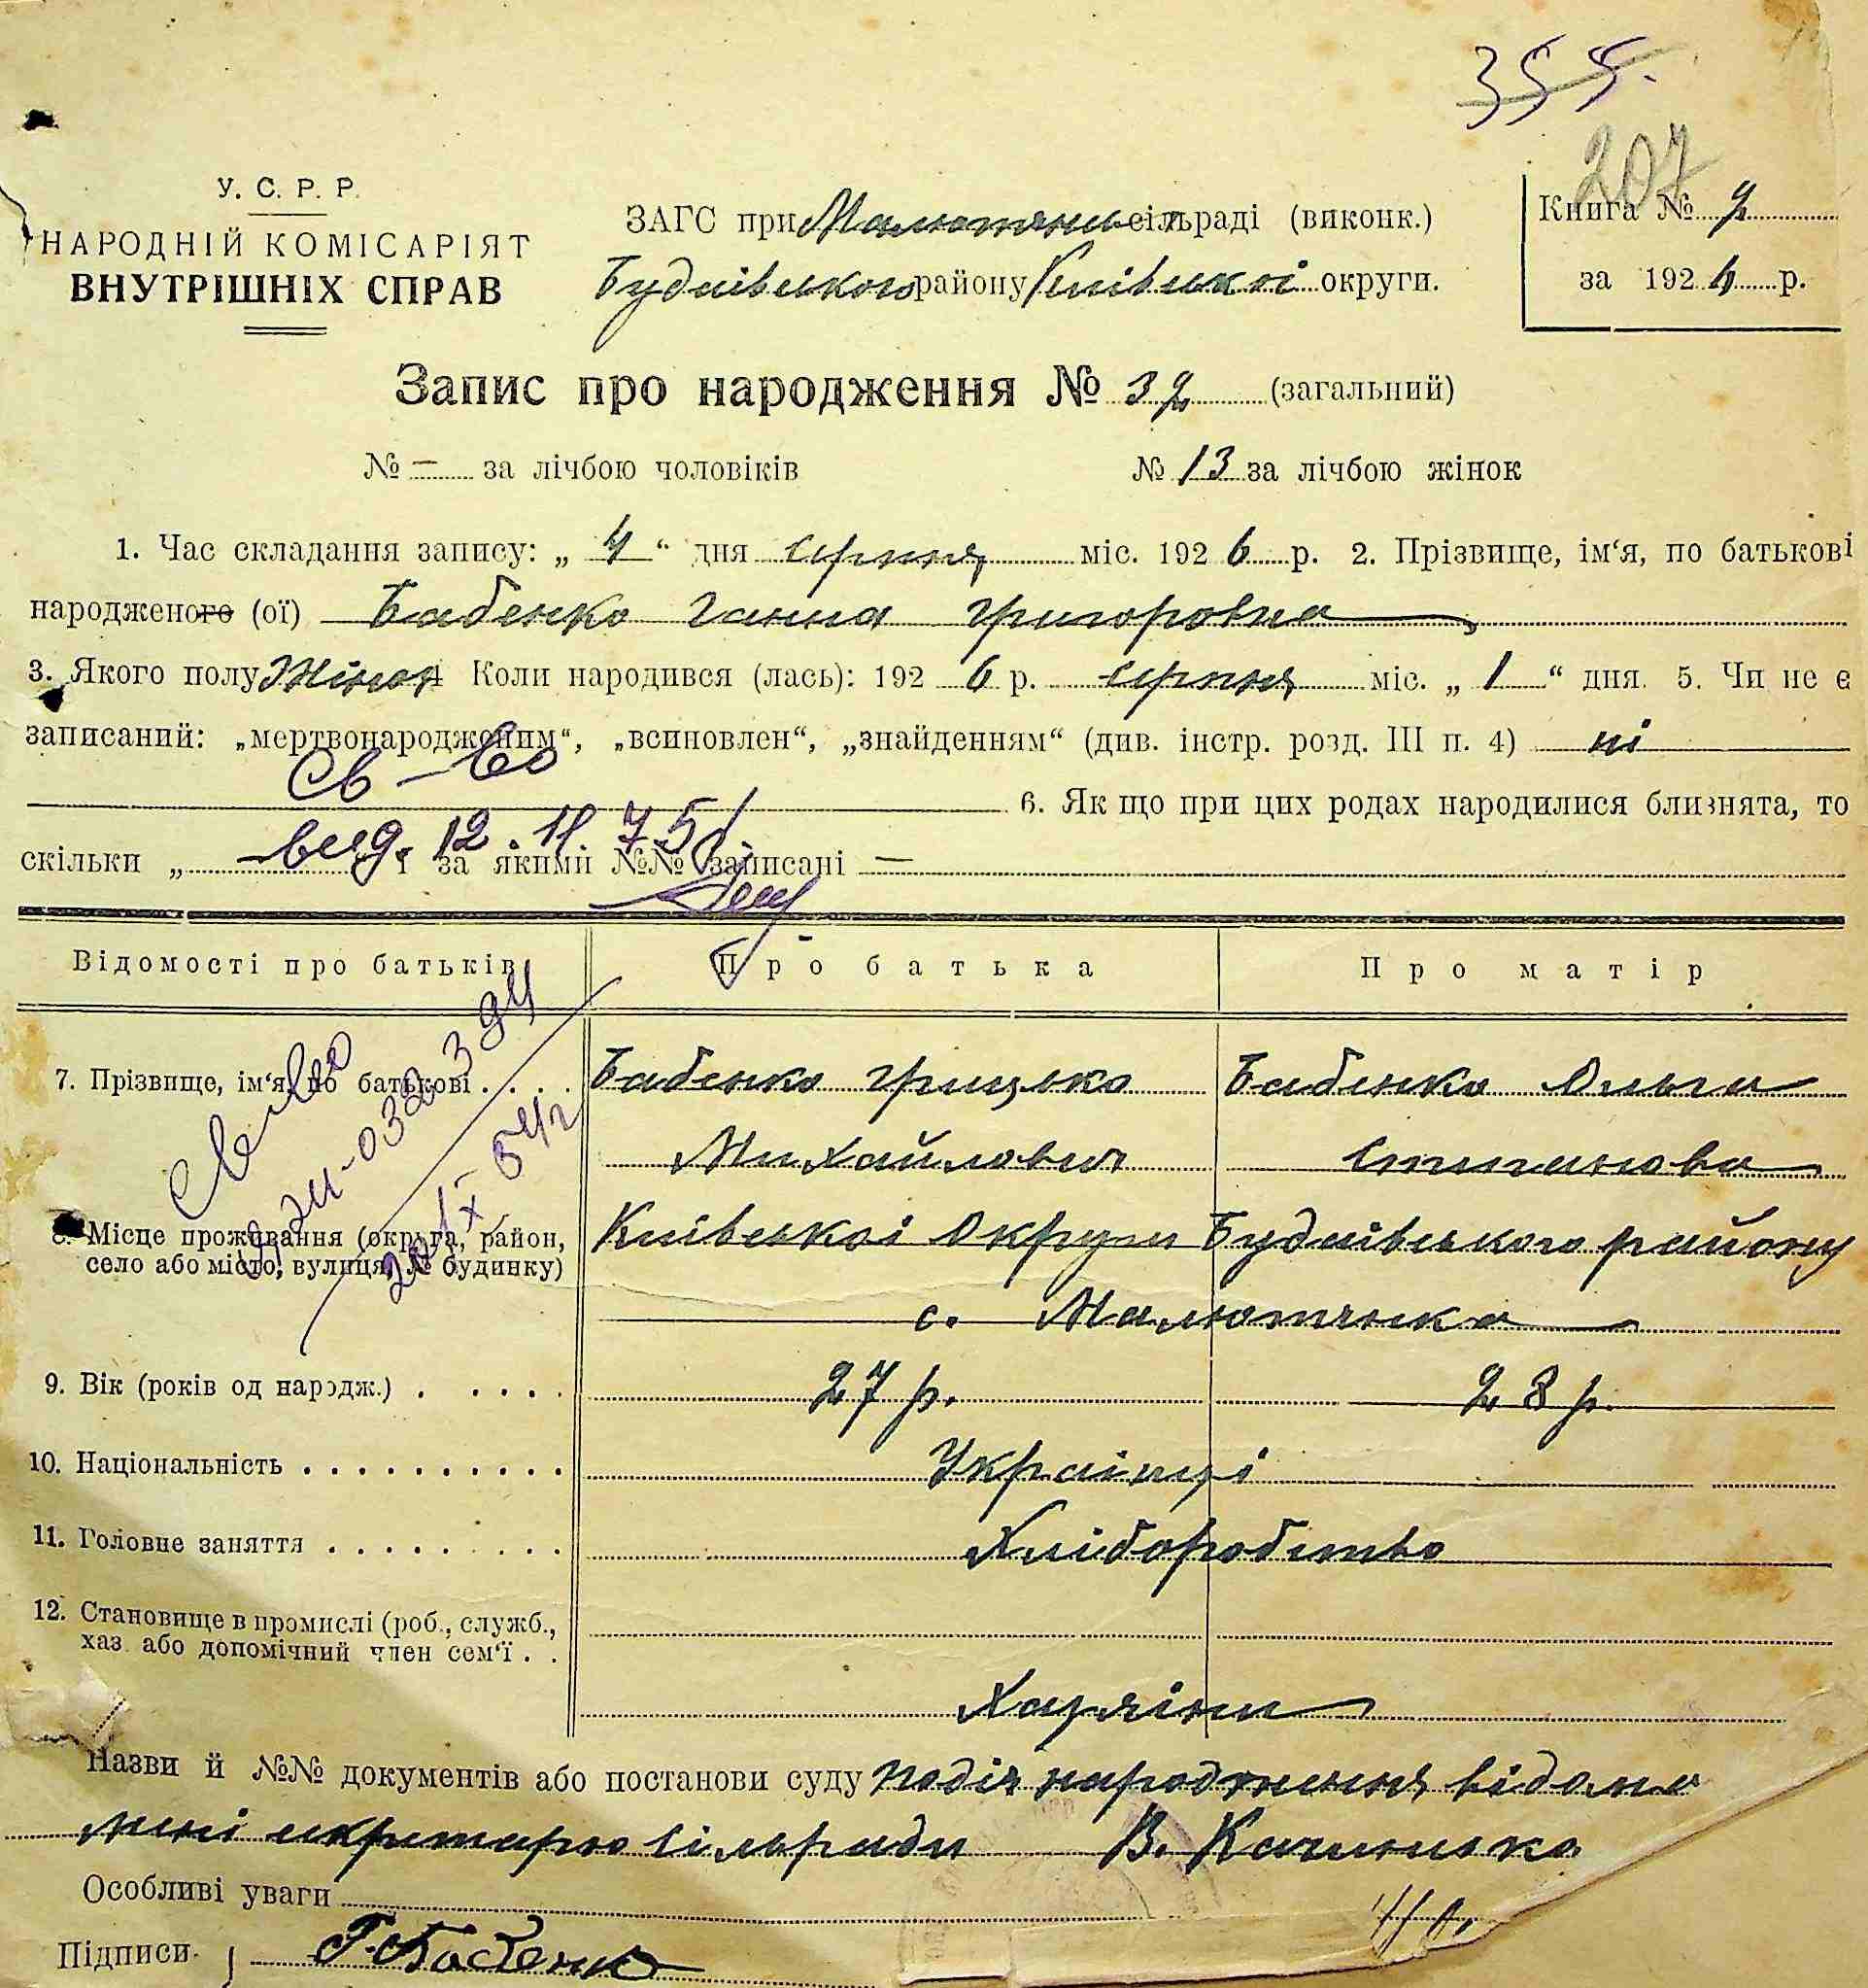 355.
207
У. С. Р. Р.
НАРОДНІЙ КОМІСАРІЯТ
ВНУТРІШНІХ СПРАВ
ЗАГС при Малютянськ сільраді (виконк.)
Будаївського району Київської округи.
Книга № 2
за 1926 р.
Запис про народження № 32 (загальний)
№ — за лічбою чоловіків
№ 13 за лічбою жінок
1. Час складання запису: „ 4 “ дня серпня міс. 1926 р. 2. Прізвище, ім‘я, по батькові
народженого (ої) Бабенко Ганна Григоровна
3. Якого полу Жіноч 4 Коли народився (лась): 192 6 р. серпня міс. „ 1 “ дня. 5. Чи не є
записаний: „мертвонародженим“, „всиновлен“, „знайденням“ (див. інстр. розд. III п. 4) ні
Св-во
6. Як що при цих родах народилися близнята, то
выд. 12.11.75
скільки „ і за якими №№ записані —
Відомості про батьків
Про батька
Про матір
7. Прізвище, ім‘я, по батькові . . . .
Бабенко Грицько
Бабенко Ольга
Михайлович
Степанова
8. Місце проживання (округа, район,
село або місто, вулиця, № будинку)
Київської Округи Будаївського району
с. Малютянка
9. Вік (років од народж.) . . . . .
27 р.
28 р.
10. Національність . . . . . . . . . .
Українці
11. Головне заняття . . . . . . . . .
Хліборобство
12. Становище в промислі (роб., служб.,
хаз. або допомічний член сем‘ї . .
Хазяїни
Назви й №№ документів або постанови суду подія народження відома
мені секретарю сільради В.
Особливі уваги
Підписи Г. Бабенко